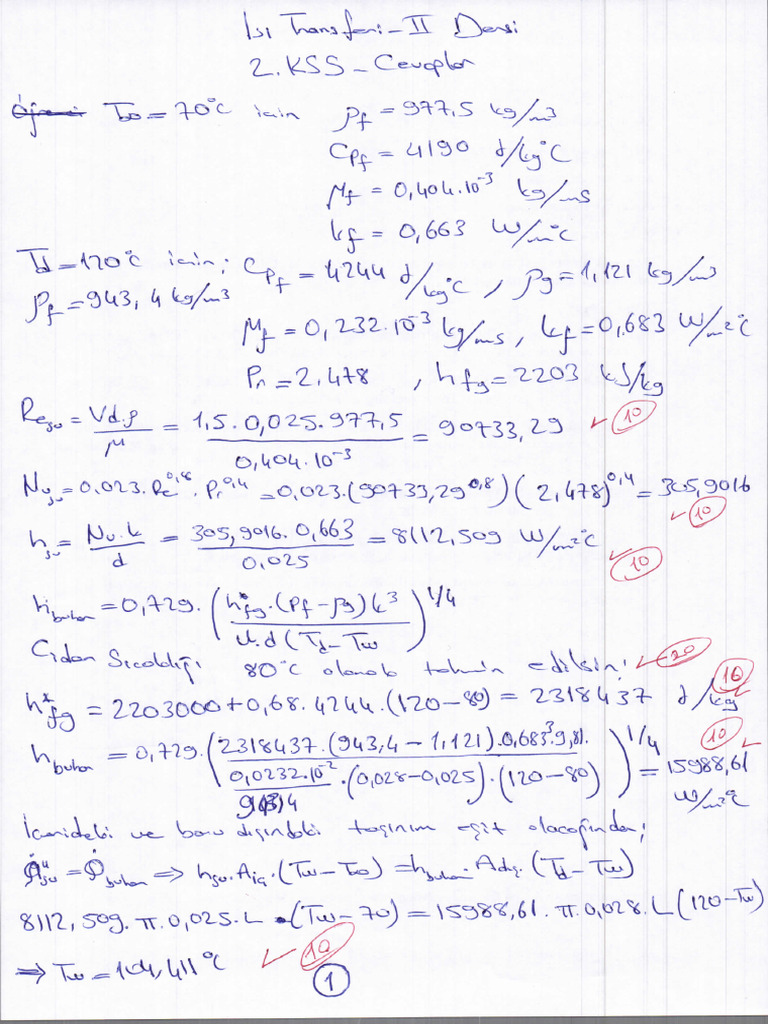 Isı Transferi-II Dersi
2.KSS-Cevaplar
T∞=70°C için ρf=977,5 kg/m³
Cpf=4190 J/kg°C
μf=0,404.10⁻³ kg/ms
kf=0,663 W/m°C
Td=120°C için; Cpf=4244 J/kg°C, ρg=1,121 kg/m³
ρf=943,4 kg/m³
μf=0,232.10⁻³ kg/ms, kf=0,683 W/m²°C
Pr=2.478, hfg=2203 kJ/kg
Resu=Vd.ρ/μ=1,5.0,025.977,5/0,404.10⁻³=90733,29 ✓ 10
Nusu=0.023.Re^0,8.Pr^0,4=0,023.(90733,29^0,8)(2,478)^0,4=305,9016
✓ 10
hsu=Nu.k/d=305,9016.0,663/0,025=8112,509 W/m²°C
✓ 10
hbuhar=0,729.(h*fg.(ρf-ρg)k³/ν.d(Td-Tw)^1/4
Cidar Sıcaklığı 80°C olarak tahmin edilsin; ✓ 20
h*fg=2203000+0,68.4244.(120-80)=2318437 J/kg 10
hbuhar=0,729.(2318437.(943,4-1,121).0,683³9,81./0,0232.10⁻²/943,4.(0,028-0,025).(120-80))^1/4=15988,61 W/m²°C 10 ✓
İçerideki ve boru dışındaki taşınım eşit olacağından;
Q̇su=Q̇buhar⟹hsu.Aiç.(Tw-T∞)=hbuhar.Adış.(Td-Tw)
8112,509.π.0,025.L.(Tw-70)=15988,61.π.0,028.L(120-Tw)
⟹Tw=104,411°C ✓ 10
1